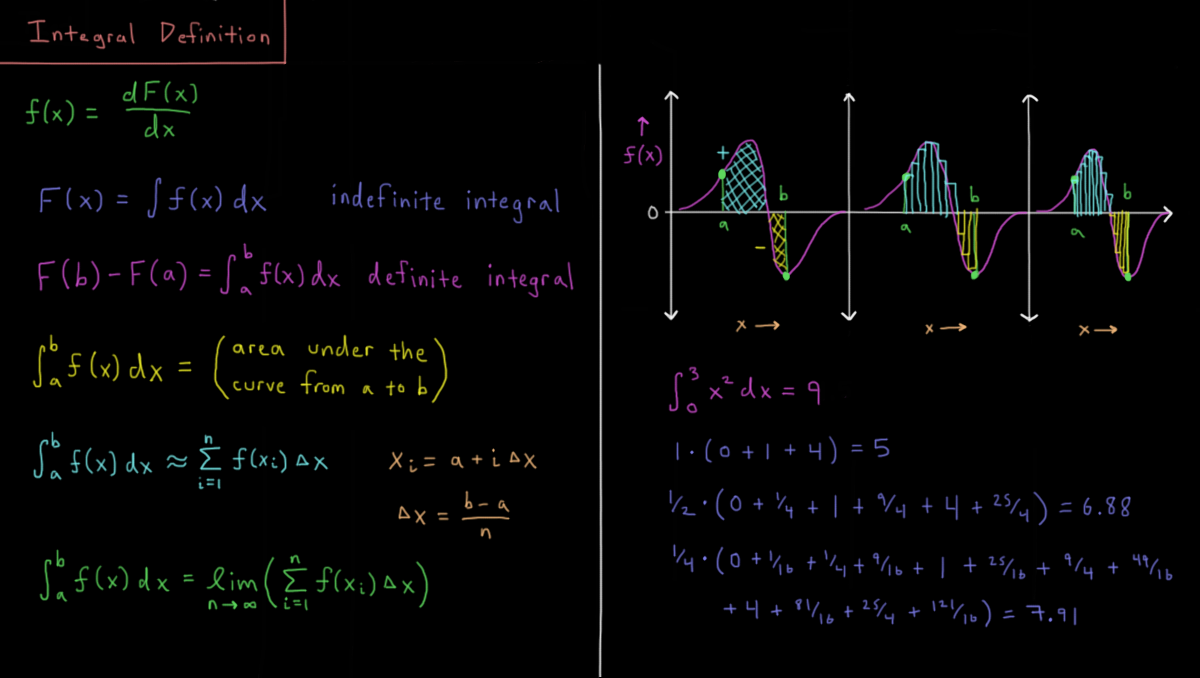 Integral Definition
f(x) = dF(x)/dx
F(x) = ∫ f(x) dx indefinite integral
F(b) - F(a) = ∫_a^b f(x) dx definite integral
∫_a^b f(x) dx = (area under the
curve from a to b)
∫_a^b f(x) dx ≈ Σ_{i=1}^n f(x_i) Δx x_i = a + i Δx
Δx = (b - a)/n
∫_a^b f(x) dx = lim_{n→∞} (Σ_{i=1}^n f(x_i) Δx)
↑
f(x)
0
+ a - b
a b
a b
x → x → x →
∫_0^3 x² dx = 9
1 · (0 + 1 + 4) = 5
1/2 · (0 + 1/4 + 1 + 9/4 + 4 + 25/4) = 6.88
1/4 · (0 + 1/16 + 1/4 + 9/16 + 1 + 25/16 + 9/4 + 49/16
+ 4 + 81/16 + 25/4 + 121/16) = 7.91